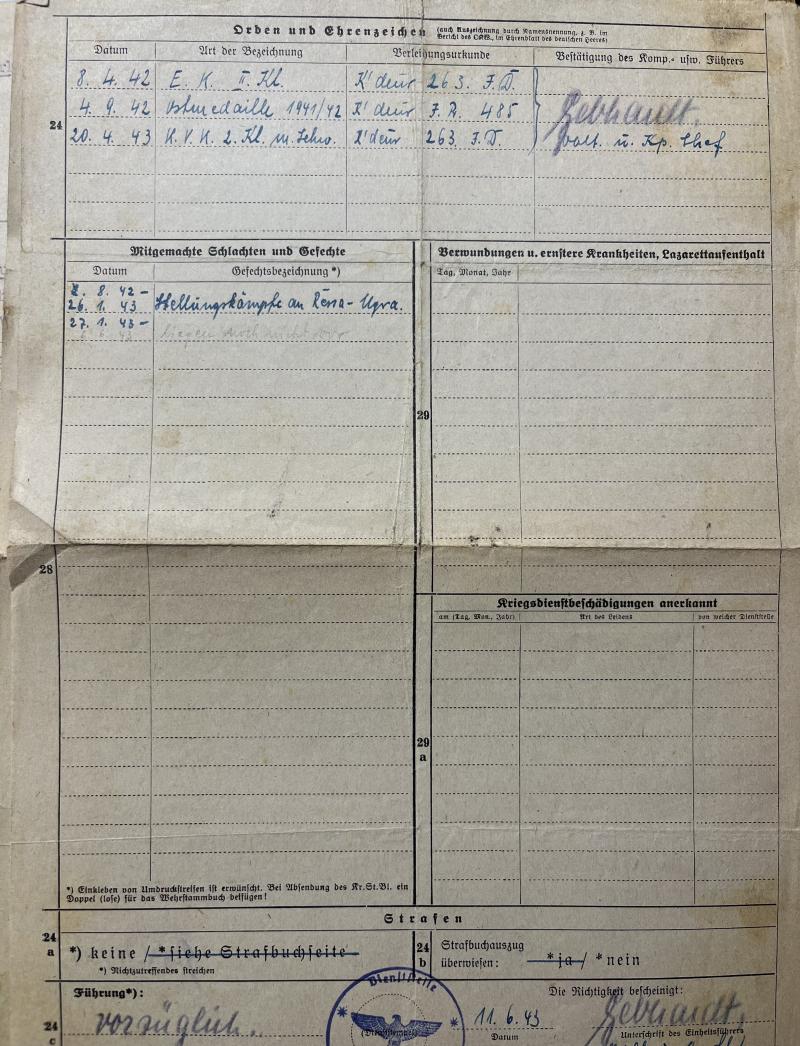 Orden und Ehrenzeichen (auch Auszeichnung durch Namensnennung, z. B. im
Bericht des OKW., im Ehrenblatt des deutschen Heeres)
Datum Art der Bezeichnung Verleihungsurkunde Bestätigung des Komp.- usw. Führers
8. 4. 42 E. K. II. Kl. K'deur 263. J.D.
24 4. 9. 42 Ostmedaille 1941/42 K'deur J.R. 485 Gebhardt.
20. 4. 43 K. V. K. 2. Kl. m. Schw. K'deur 263. J.D. u. Kp. Chef
Mitgemachte Schlachten und Gefechte
Datum Gefechtsbezeichnung *)
8. 42 -
26. 1. 43 Stellungskämpfe an Ressa - Ugra.
27. 1. 43 -
liegen noch nicht vor
28
*) Einkleben von Umdruckstreifen ist erwünscht. Bei Absendung des Kr.St.Bl. ein
Doppel (lose) für das Wehrstammbuch beifügen!
Verwundungen u. ernstere Krankheiten, Lazarettaufenthalt
Tag, Monat, Jahr
29
Kriegsdienstbeschädigungen anerkannt
am (Tag, Mon., Jahr) Art des Leidens von welcher Dienststelle
29
a
Strafen
24
a *) keine / * siehe Strafbuchseite
*) Nichtzutreffendes streichen
24
b Strafbuchauszug
überwiesen: * ja / * nein
Führung*):
24
c vorzüglich.
Dienststelle
Die Richtigkeit bescheinigt:
11. 6. 43 Gebhardt.
Datum Unterschrift des Einheitsführers